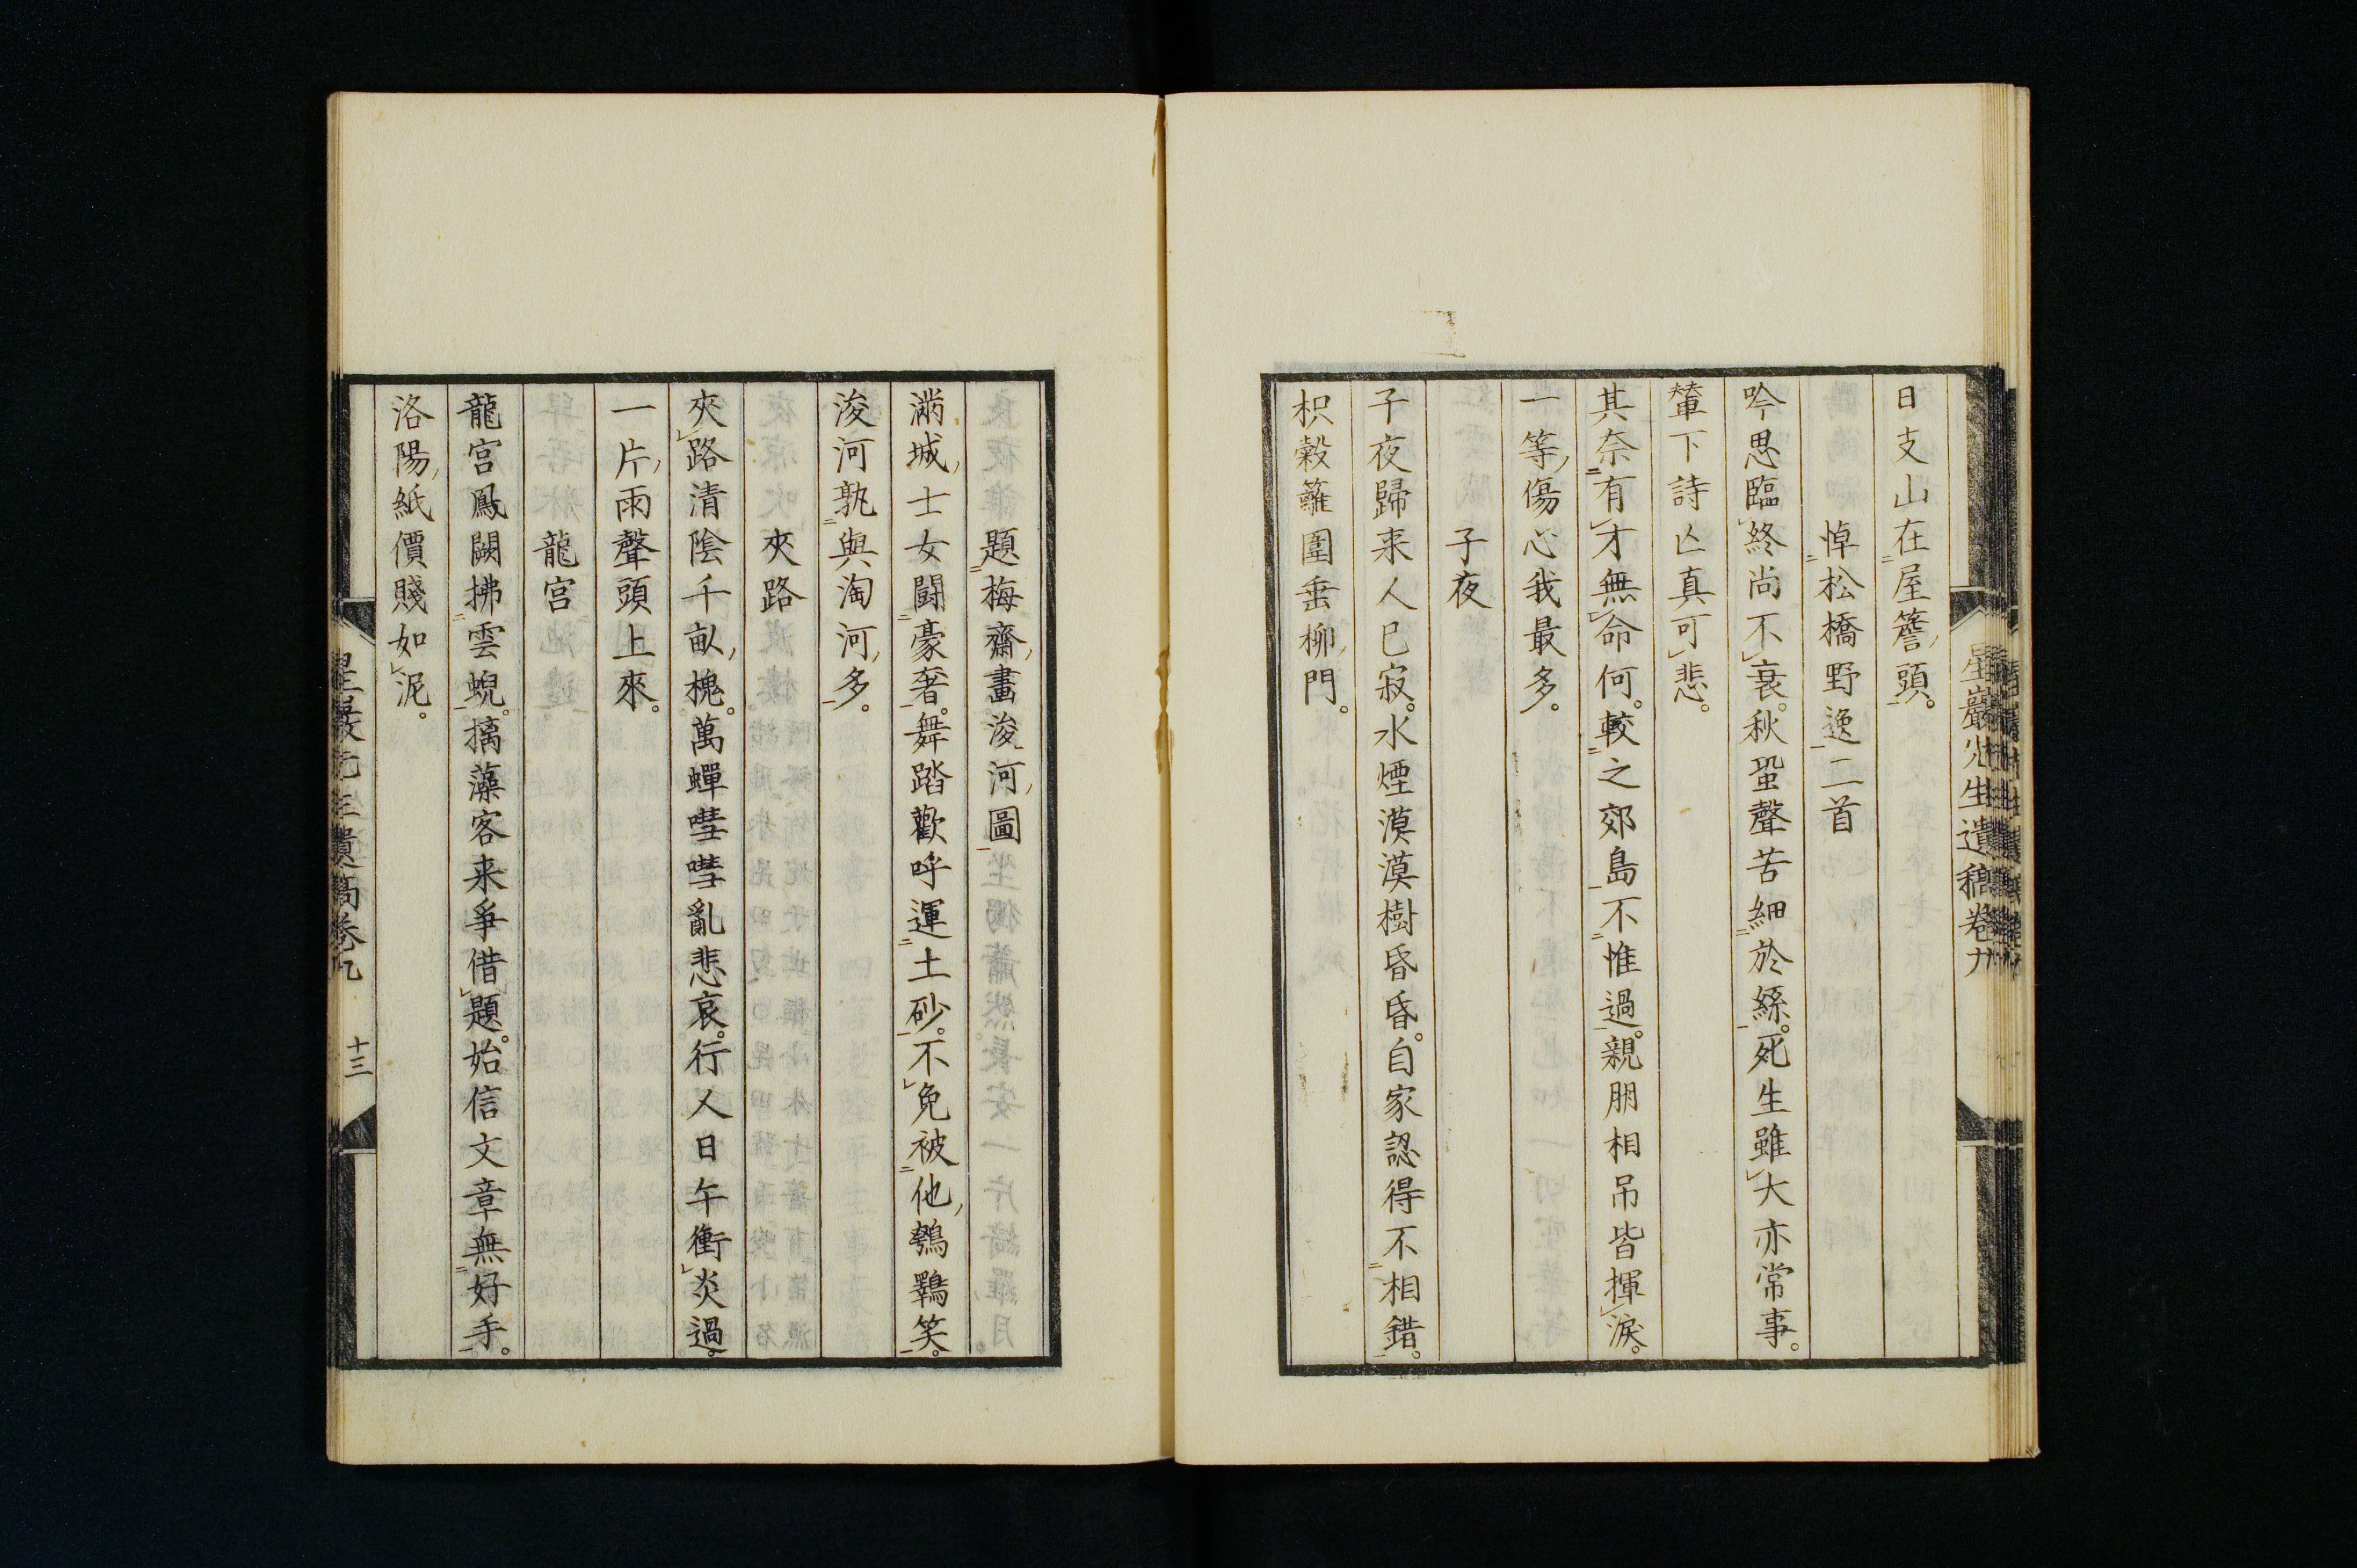 星巖先生遺稿卷九
日支山在屋簷頭。
悼松橋野逸二首
吟思臨終尚不衰。秋蛩聲苦細於絲。死生雖大亦常事。
輦下詩亾真可悲。
其奈有才無命何。較之郊島不惟過。親朋相吊皆揮淚。
一等傷心我最多。
子夜
子夜歸来人已寂。水煙漠漠樹昏昏。自家認得不相錯。
枳穀籬圍垂柳門。
題梅齋畫浚河圖
滿城士女鬪豪奢。舞踏歡呼運土砂。不免被他鶚鷄笑。
浚河孰與淘河多。
夾路
夾路清陰千畝槐。萬蟬嘒嘒亂悲哀。行人日午衝炎過。
一片雨聲頭上來。
龍宮
龍宮鳳闕拂雲蜺。摛藻客来爭借題。始信文章無好手。
洛陽紙價賤如泥。
星巖先生遺稿卷九
十三